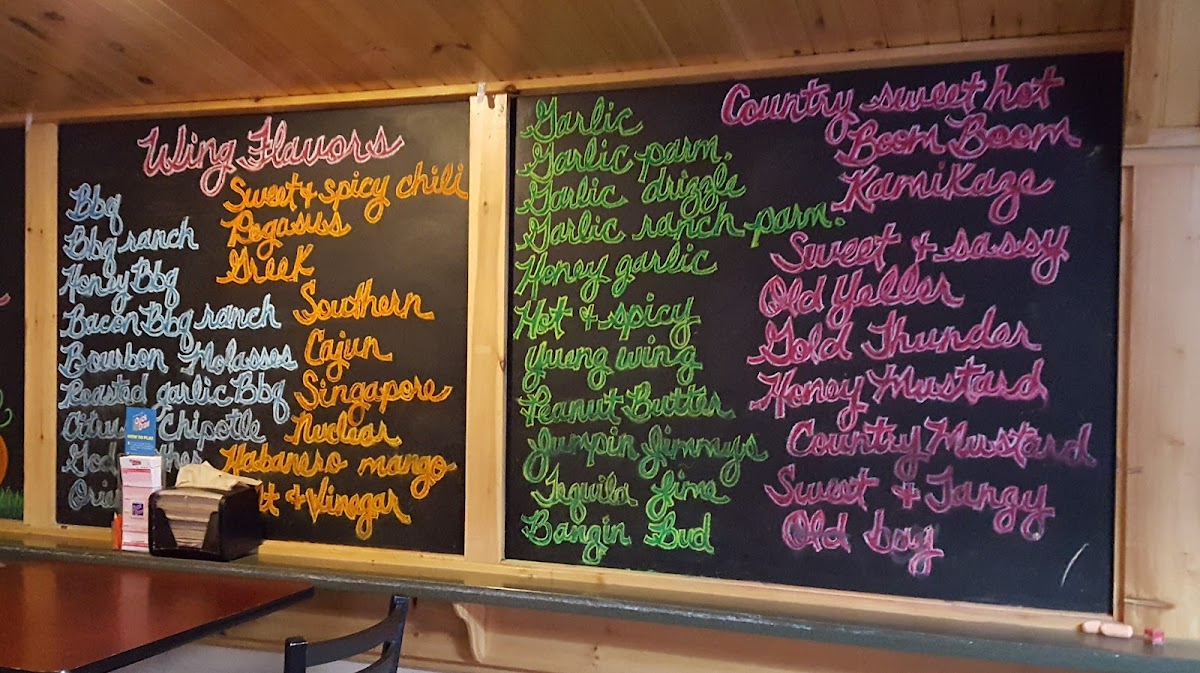 Wing Flavors
Bbq
Bbq ranch
Honey Bbq
Bacon Bbq ranch
Bourbon Molasses
Roasted garlic Bbq
Chipotle
Sweet & spicy chili
Pegasiss
Greek
Southern
Cajun
Singapore
Nuclear
Habanero mango
& Vinegar
Garlic
Garlic parm.
Garlic drizzle
Garlic ranch parm.
Honey garlic
Hot & spicy
Yueng wing
Peanut Butter
Jumpin Jimmys
Tequila lime
Bangin Bud
Country sweet hot
Boom Boom
Kamikaze
Sweet & sassy
Old Yeller
Gold Thunder
Honey Mustard
Country Mustard
Sweet & Tangy
Old bay